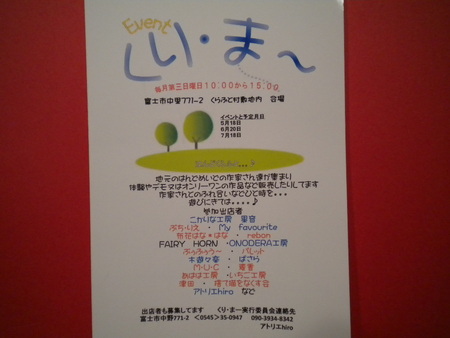 Event
くり・ま～
毎月第三日曜日10:00から15:00
富士市中里771-2 くらふと村敷地内 会場
イベントと予定月日
5月18日
6月20日
7月18日
地元のはんどめいどの作家さん達が集まり
体験やデモまたはオンリーワンの作品など販売したりしてます
作家さんとのふれ合いなどひと時を・・・
遊びにきてね････♪
参加出店者
こかりな工房 里音
ぷち・りえ ・ My favourite
布花はな*はな ・ rebon
FAIRY HORN ・ONODERA工房
ぷぅふぅうー ・ パレット
木遊々亭 ・ ばさら
M・U・C ・ 蜜蜜
あはは工房 ・いちご工房
津価 ・ 捨て猫をなくす会
アトリエhiro など
出店者も募集してます くり・まー実行委員会連絡先
富士市中野771-2 <0545>35-0947 090-3934-8342
アトリエhiro